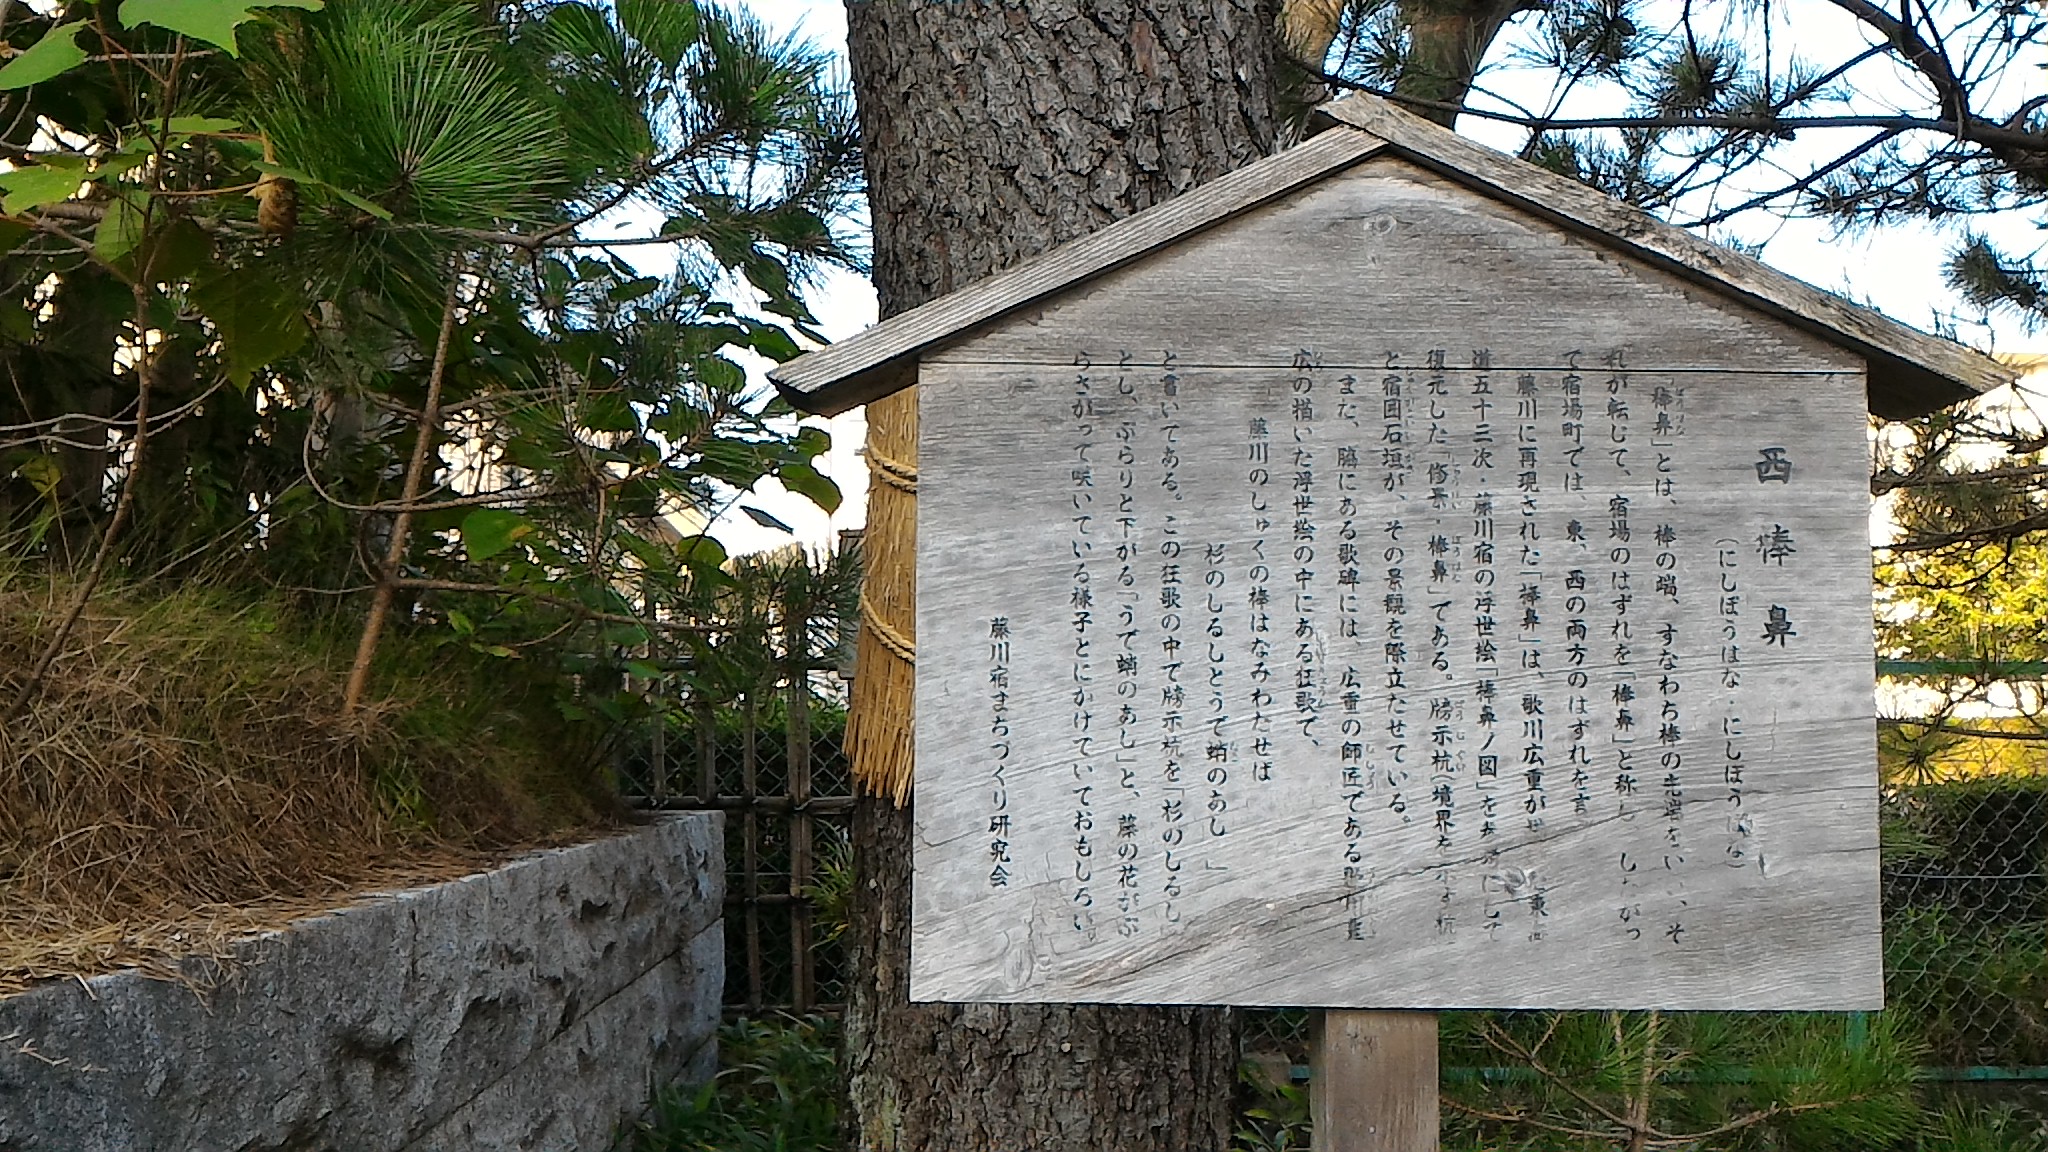 西棒鼻
(にしぼうはな・にしぼうばな)
「棒鼻」とは、棒の端、すなわち棒の先端をいい、そ
れが転じて、宿場のはずれを「棒鼻」と称し
て宿場町では、東、西の両方のはずれを言
藤川に再現された「棒鼻」は、歌川広重が
道五十三次・藤川宿の浮世絵「棒鼻ノ図」を
復元した「修景・棒鼻」である。牓示杭(境界を示す杭
と宿囲石垣が、その景観を際立たせている。
また、脇にある歌碑には、広重の師匠である歌川豊
広の描いた浮世絵の中にある狂歌で、
藤川のしゅくの棒はなみわたせば
杉のしるしとうで蛸のあし」
と書いてある。この狂歌の中で牓示杭を「杉のしるし」
とし、ぶらりと下がる「うで蛸のあし」と、藤の花がぶ
らさがって咲いている様子とにかけていておもしろい
藤川宿まちづくり研究会